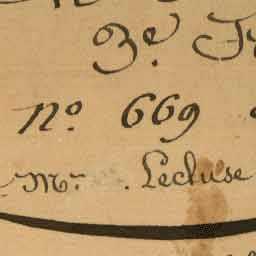 3e.
No. 669
Mr. Lecluse